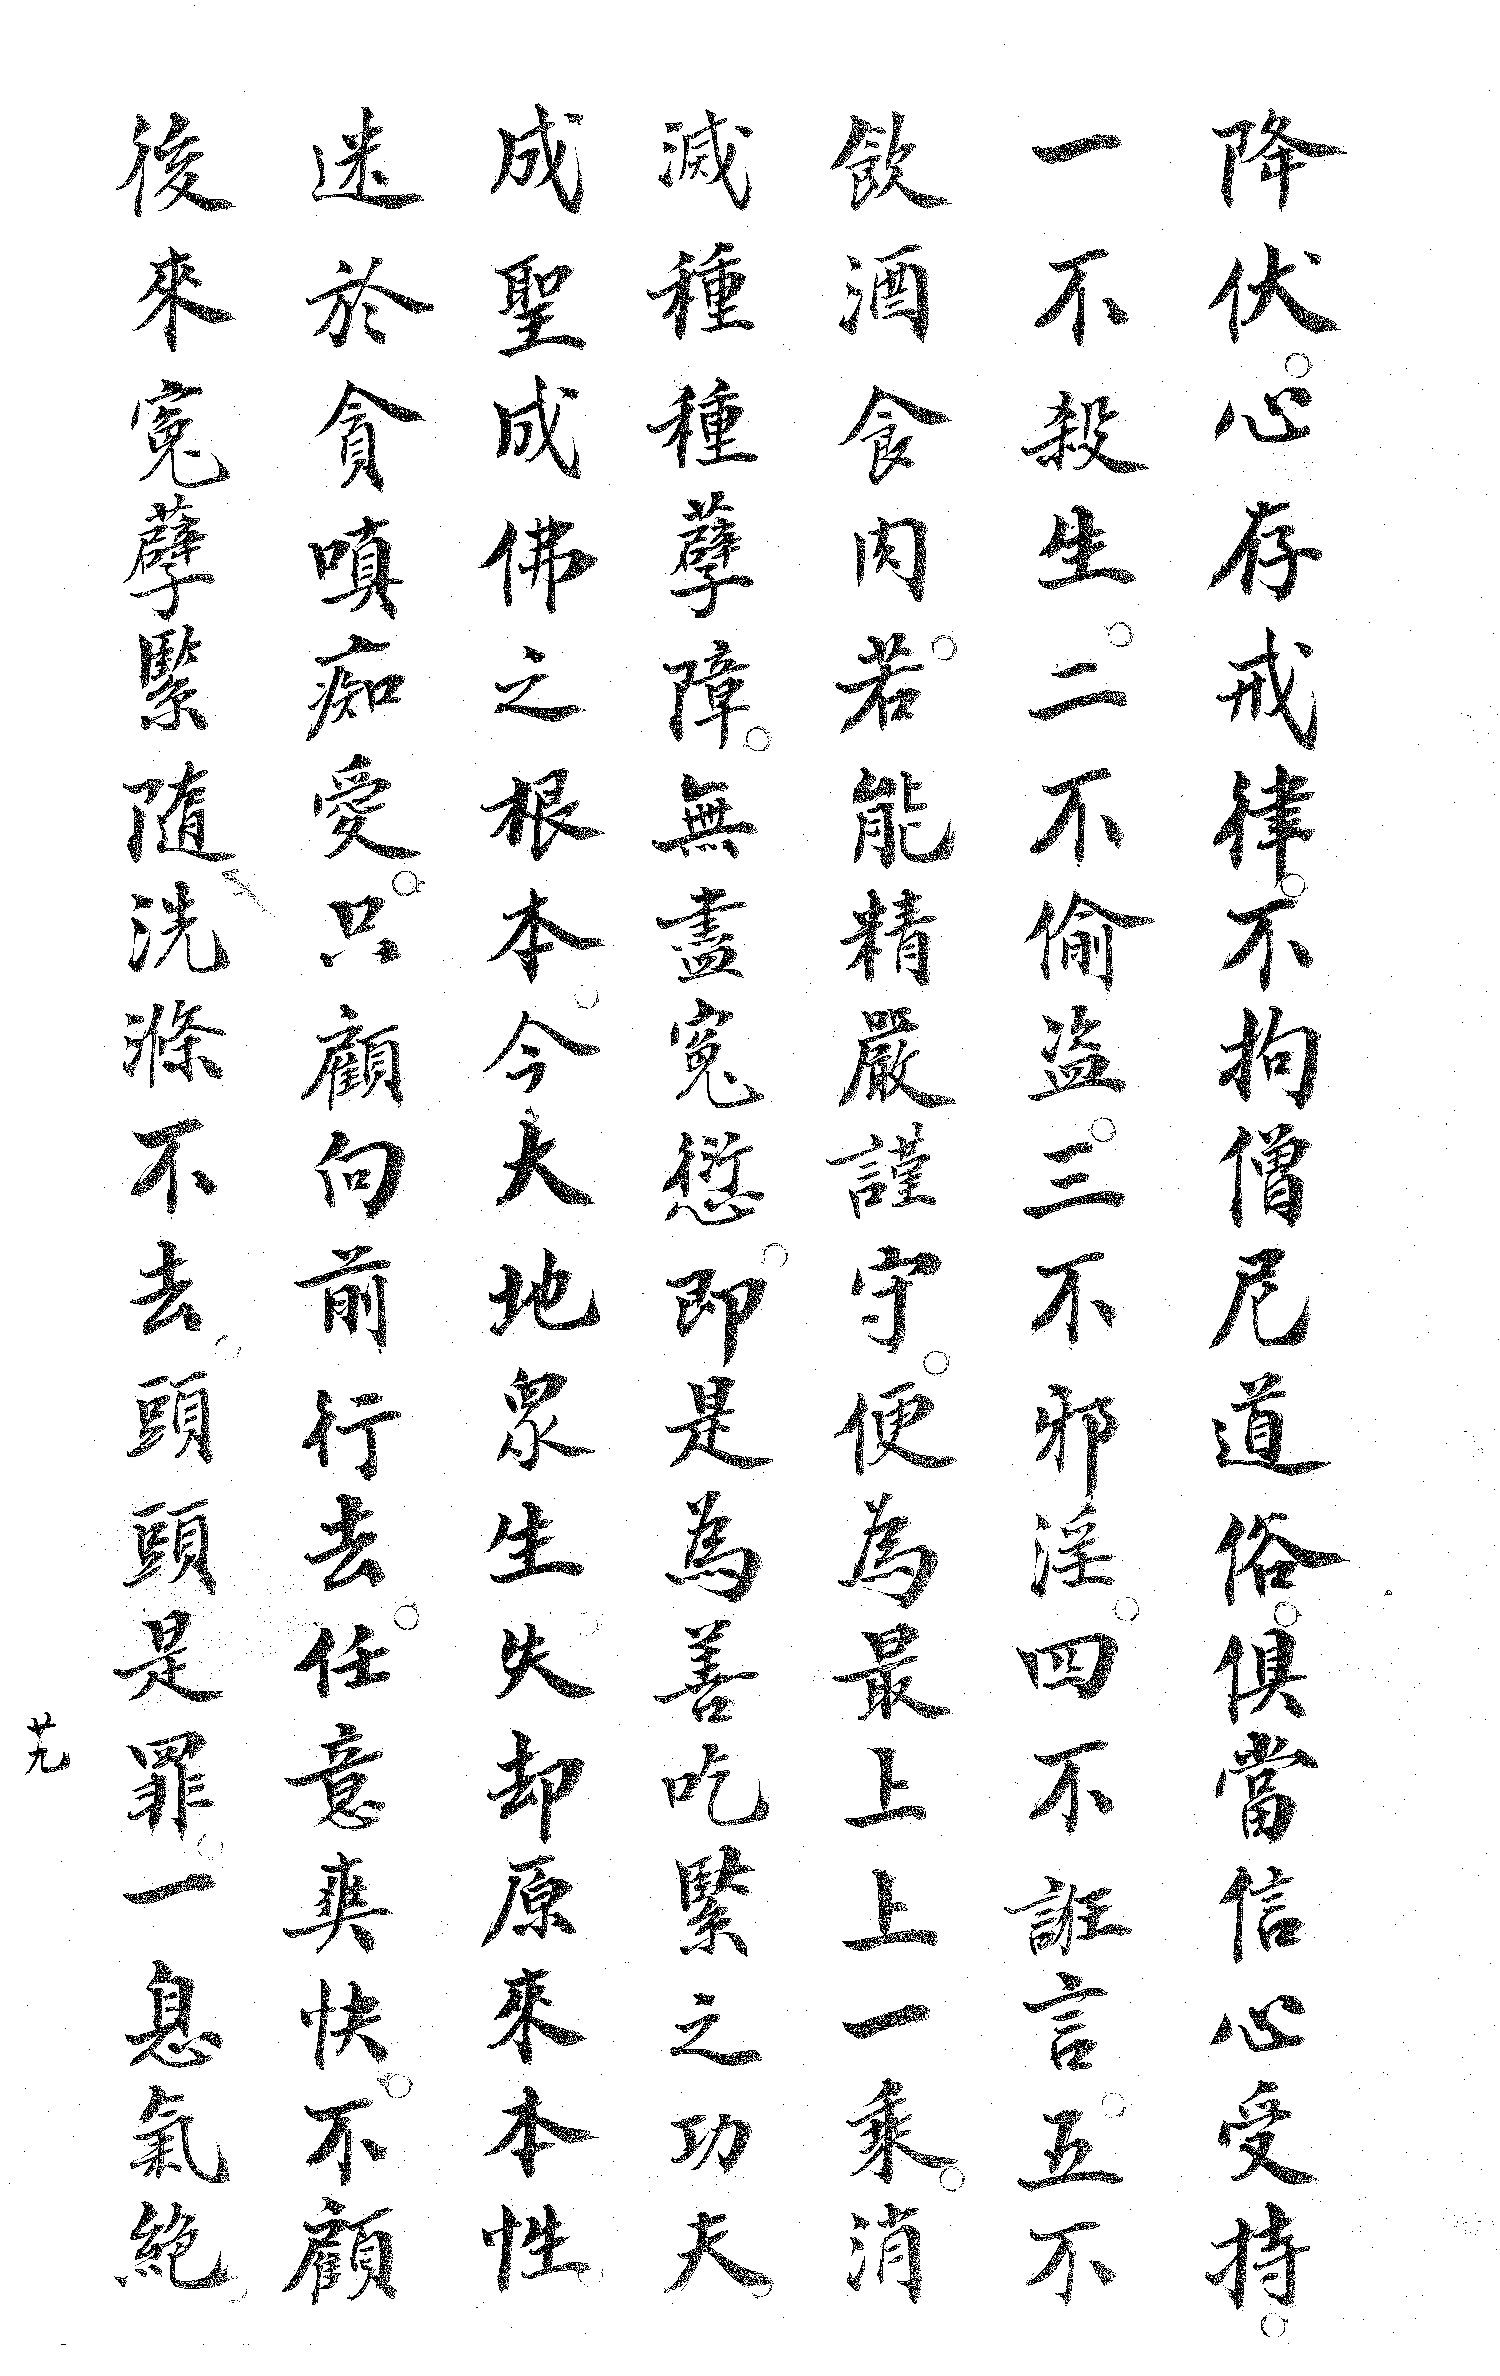 降伏。心存戒律。不拘僧尼道俗。俱當信心受持。
一不殺生。二不偷盜。三不邪淫。四不誑言。五不
飲酒食肉。若能精嚴謹守。便為最上上一乘。消
滅種種孽障。無盡冤愆。即是為善吃緊之功夫。
成聖成佛之根本。今大地眾生。失却原來本性。
迷於貪嗔痴愛。只顧向前行去。任意爽快。不顧
後來冤孽緊隨。洗滌不去。頭頭是罪。一息氣絕。
廿九